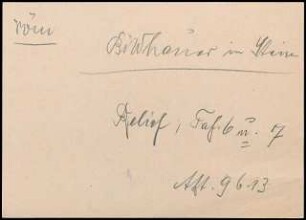 röm
Bildhauer in Stein
Relief, Taf. 6 u. 7
Aft. 9613